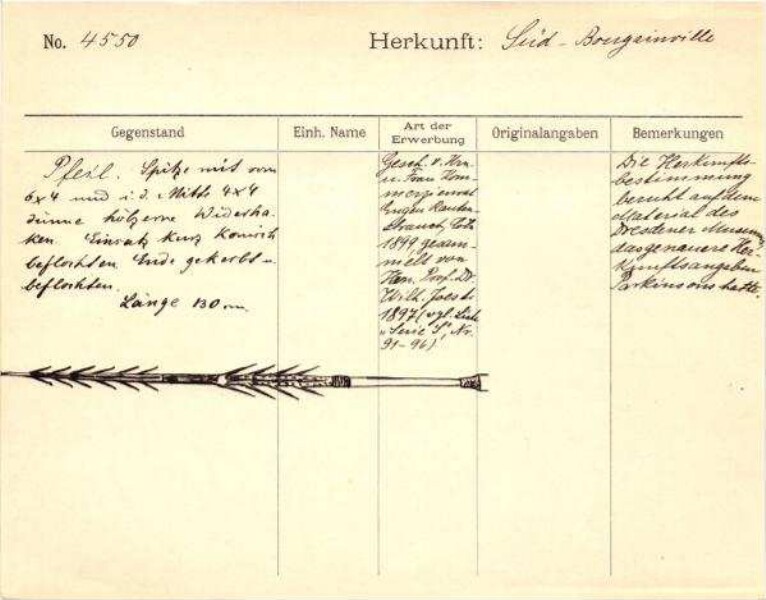 No. 4550
Herkunft: Süd-Bougainville
Gegenstand
Einh. Name
Art der Erwerbung
Originalangaben
Bemerkungen
Pfeil. Spitze mit vorn
6x4 und i. d. Mitte 4x4
dünne hölzerne Widerha-
ken. Einsatz kurz konisch
beflochten. Ende gekerbt u.
beflochten.
Länge 130 cm.
Gesch. v. Hrn.
u. Frau Kom-
merzienrat
Eugen Rauten-
strauch, Cöln
1899 gesam-
melt von
Hrn. Prof. Dr.
Wilh. Joest
1897 (vgl. Liste
„Serie S", Nr.
91-96)
Die Herkunfts-
bestimmung
beruht auf dem
Material des
Dresdener Museums,
das genauere Her-
kunftsangaben
Parkinsons hatte.